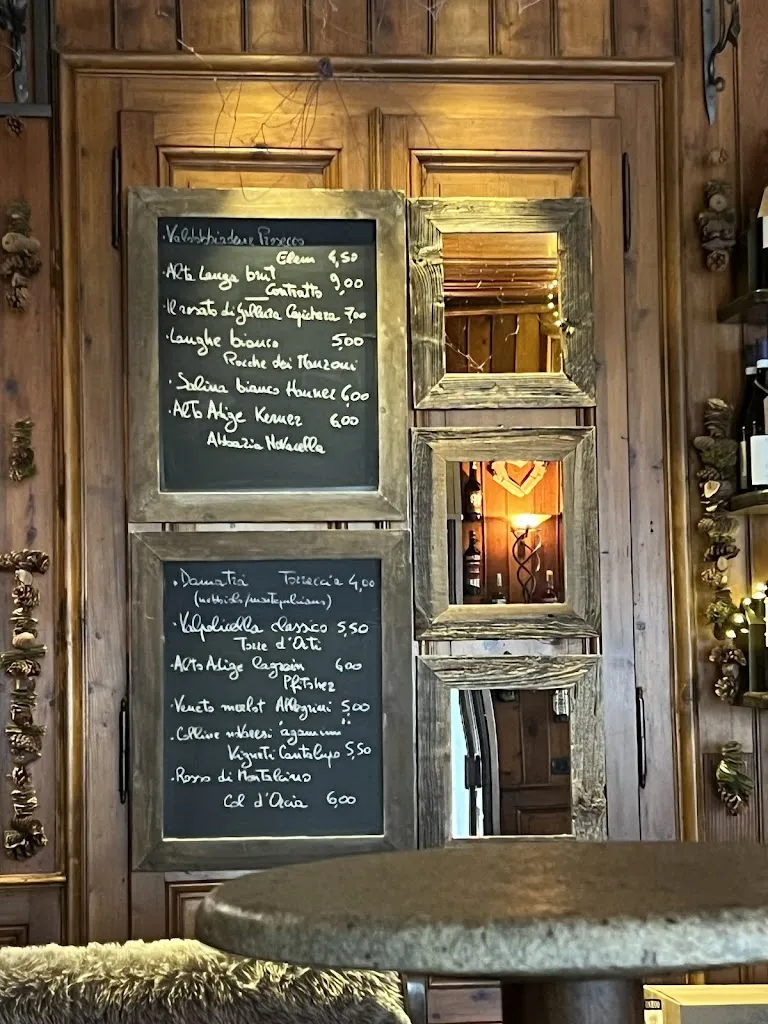 · Valdobbiadene Prosecco
Elem 4,50
· Alta Langa brut 9,00
Contratto
· Il rosato di Gallura Capichera 7,00
· Langhe bianco 5,00
Rocche dei Manzoni
· Salina bianco Hauner 6,00
· Alto Adige Kerner 6,00
Abbazia Novacella
· Damatrà Torraccia 4,00
· Valpolicella classico 5,50
Torre d'Orti
· Alto Adige lagrein 6,00
Pfitsher
· Veneto merlot Allegrini 5,00
· Colline novaresi "agamium"
Vigneti Cantalupo 5,50
· Rosso di Montalcino
Col d'Orcia 6,00